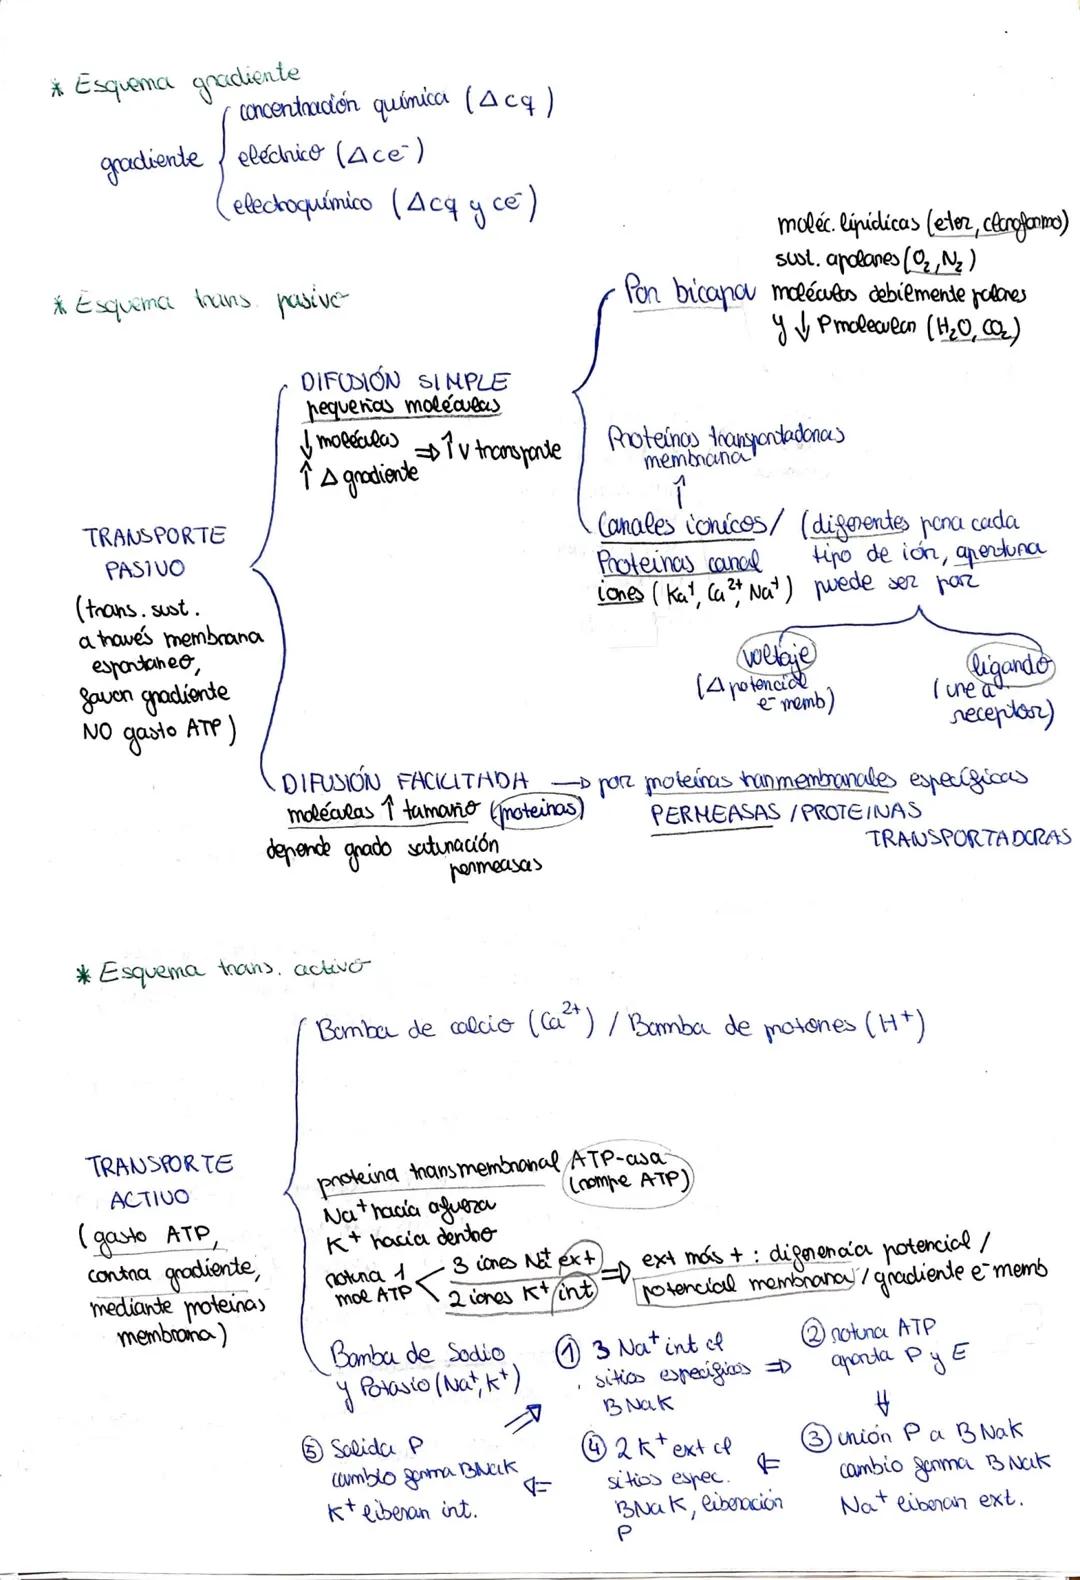 * Esquema gradiente
gradiente
concentración química (Δcq)
eléctrico (Δce⁻)
electroquímico (Δcq y ce⁻)
* Esquema trans. pasivo
TRANSPORTE
PASIVO
(trans. sust.
a través membrana
espontaneo,
favor gradiente
NO gasto ATP)
DIFUSIÓN SIMPLE
pequeñas moléculas
↓ moléculas
↑ Δ gradiente
⇒ ↑ v transporte
Por bicapa
moléc. lipídicas (eter, cloroformo)
sust. apolares (O₂, N₂)
moléculas debilmente polares
y ↓ P molecular (H₂O, CO₂)
Proteínas transportadoras
membrana
↑
Canales iónicos/
Proteínas canal
iones (Ka⁺, Ca²⁺, Na⁺)
(diferentes para cada
tipo de ión, apertura
puede ser por
voltaje
(Δ potencial
e⁻ memb)
ligando
(une a
receptor)
DIFUSIÓN FACILITADA → por proteínas tranmembranales específicas
moléculas ↑ tamaño (proteinas)
depende grado saturación
permeasas
PERMEASAS / PROTEINAS
TRANSPORTADORAS
* Esquema trans. activo
TRANSPORTE
ACTIVO
(gasto ATP,
contra gradiente,
mediante proteinas
membrana)
Bomba de calcio (Ca²⁺) / Bomba de protones (H⁺)
proteina transmembranal ATP-asa
(rompe ATP)
Na⁺ hacía afuera
K⁺ hacia dentro
rotura 1
mol ATP
3 iones Na⁺ ext
2 iones K⁺ int
⇒ ext más + : diferencia potencial /
potencial membrana / gradiente e⁻ memb
Bomba de Sodio
y Potasio (Na⁺, K⁺)
① 3 Na⁺ int cf
sitios específicos ⇒
BNaK
② rotura ATP
aporta P y E
⇓
③ unión P a BNaK
cambio forma BNaK
Na⁺ liberan ext.
⇐
④ 2 K⁺ ext cf
sitios espec.
BNaK, liberación
P
⇐
⑤ Salida P
cambio forma BNaK
K⁺ liberan int.